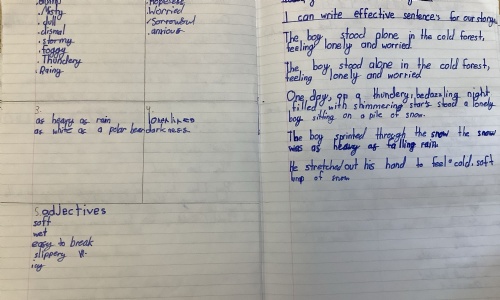 . Misty
. dull
. dismal
. stormy
. foggy
. Thundery
. Rainy
. hopeless
. Worried
. Sorrowful
. anxious
3.
as heavy as rain
as white as a polar bear
4
loneliness
darkness
5. adjectives
soft
wet
easy to break
slippery
icy
I can write effective sentences for our story.
The boy stood alone in the cold forest,
feeling lonely and worried.
The boy stood alone in the cold forest,
feeling lonely and worried
One day, on a thundery, bedazzling night
filled with shimmering stars stood a lonely
boy sitting on a pile of snow.
The boy sprinted through the snow the snow
was as heavy as falling rain
He stretched out his hand to feel a cold, soft
lump of snow